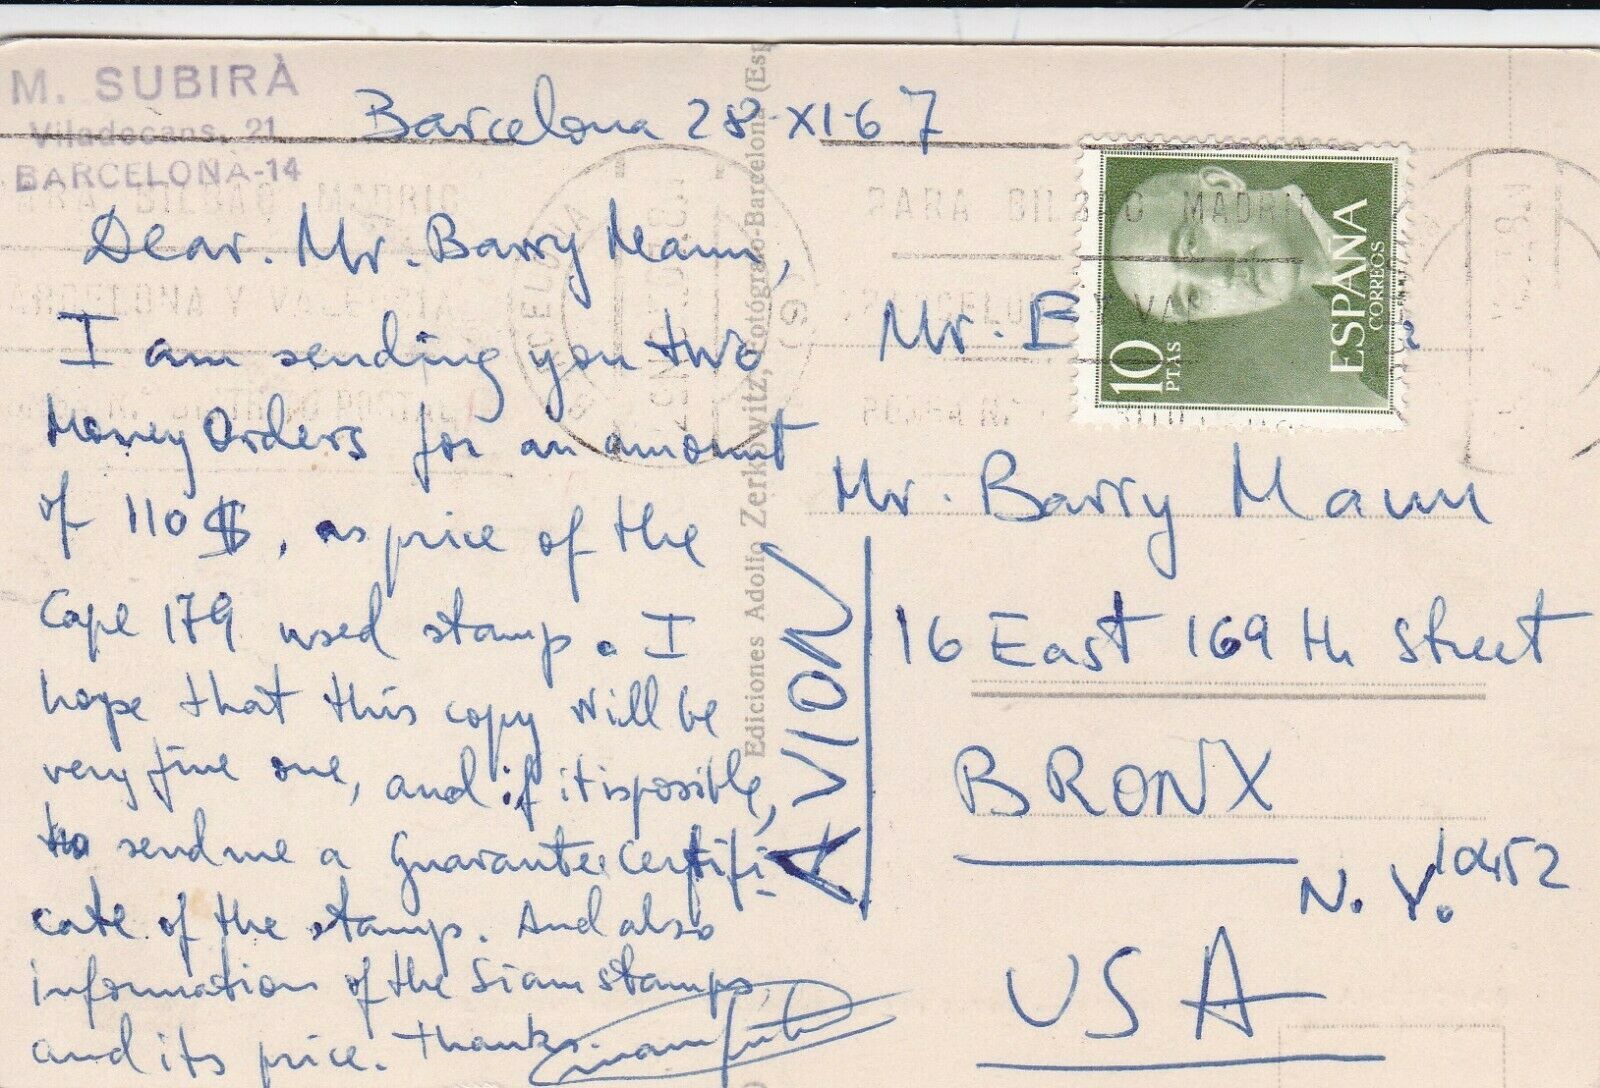 M. SUBIRÀ
Viladecans, 21
BARCELONA-14
Barcelona 28-XI-67
Dear. Mr. Barry Mann,
I am sending you two
Money Orders for an amount
of 110 $, as price of the
Cape 179 used stamp. I
hope that this copy will be
very fine one, and if it is possible,
to send me a Guarantee Certifi-
cate of the stamp. And also
information of the Siam stamps,
and its price. Thanks.
Ediciones Adolfo Zerkowitz, Fotógrafo-Barcelona (Esp
AVION
ESPAÑA
CORREOS
10
PTAS
BILBAO MADRID
BARCELONA Y VALENCIA
SARA BILBAO MADRID
Mr. E
Mr. Barry Mann
16 East 169 th Street
BRONX
N. Y. 10452
USA